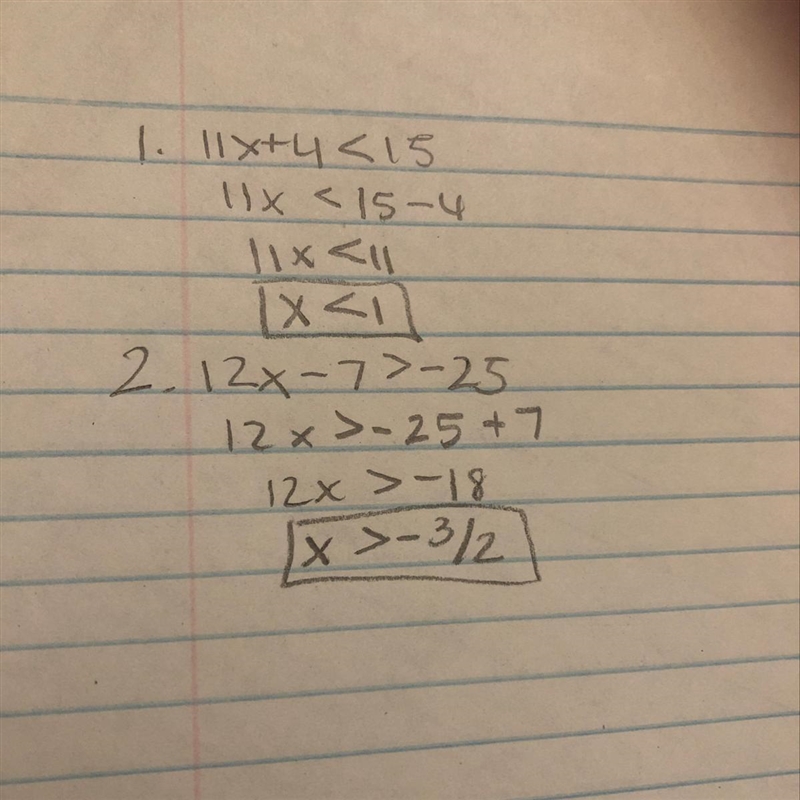 1. 11x+4<15
11x <15-4
11x <11
x <1
2. 12x-7>-25
12x >-25 +7
12x >-18
x >-3/2